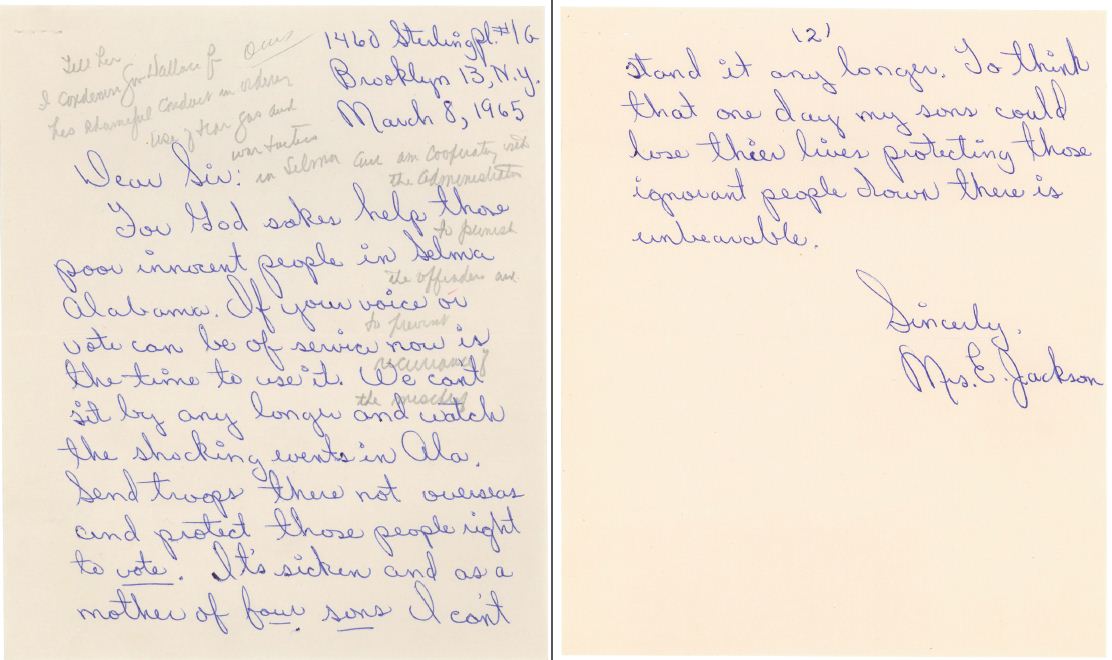 1460 Sterling pl. #1G
Brooklyn 13, N.Y.
March 8, 1965
Tell her
I condemn Gov Wallace for
his shameful conduct in ordering
use of tear gas and
war tactics
in Selma and am cooperating with
the Administration
to punish
the offenders and
to prevent
recurrence of
the
Dear Sir:
For God sakes help those
poor innocent people in Selma
Alabama. If your voice or
vote can be of service now is
the time to use it. We cant
sit by any longer and watch
the shocking events in Ala.
Send troops there not overseas
and protect those people right
to vote. It's sicken and as a
mother of four sons I can't
(2)
stand it any longer. To think
that one day my sons could
lose thier lives protecting those
ignorant people down there is
unbearable.
Sincerly,
Mrs. E. Jackson